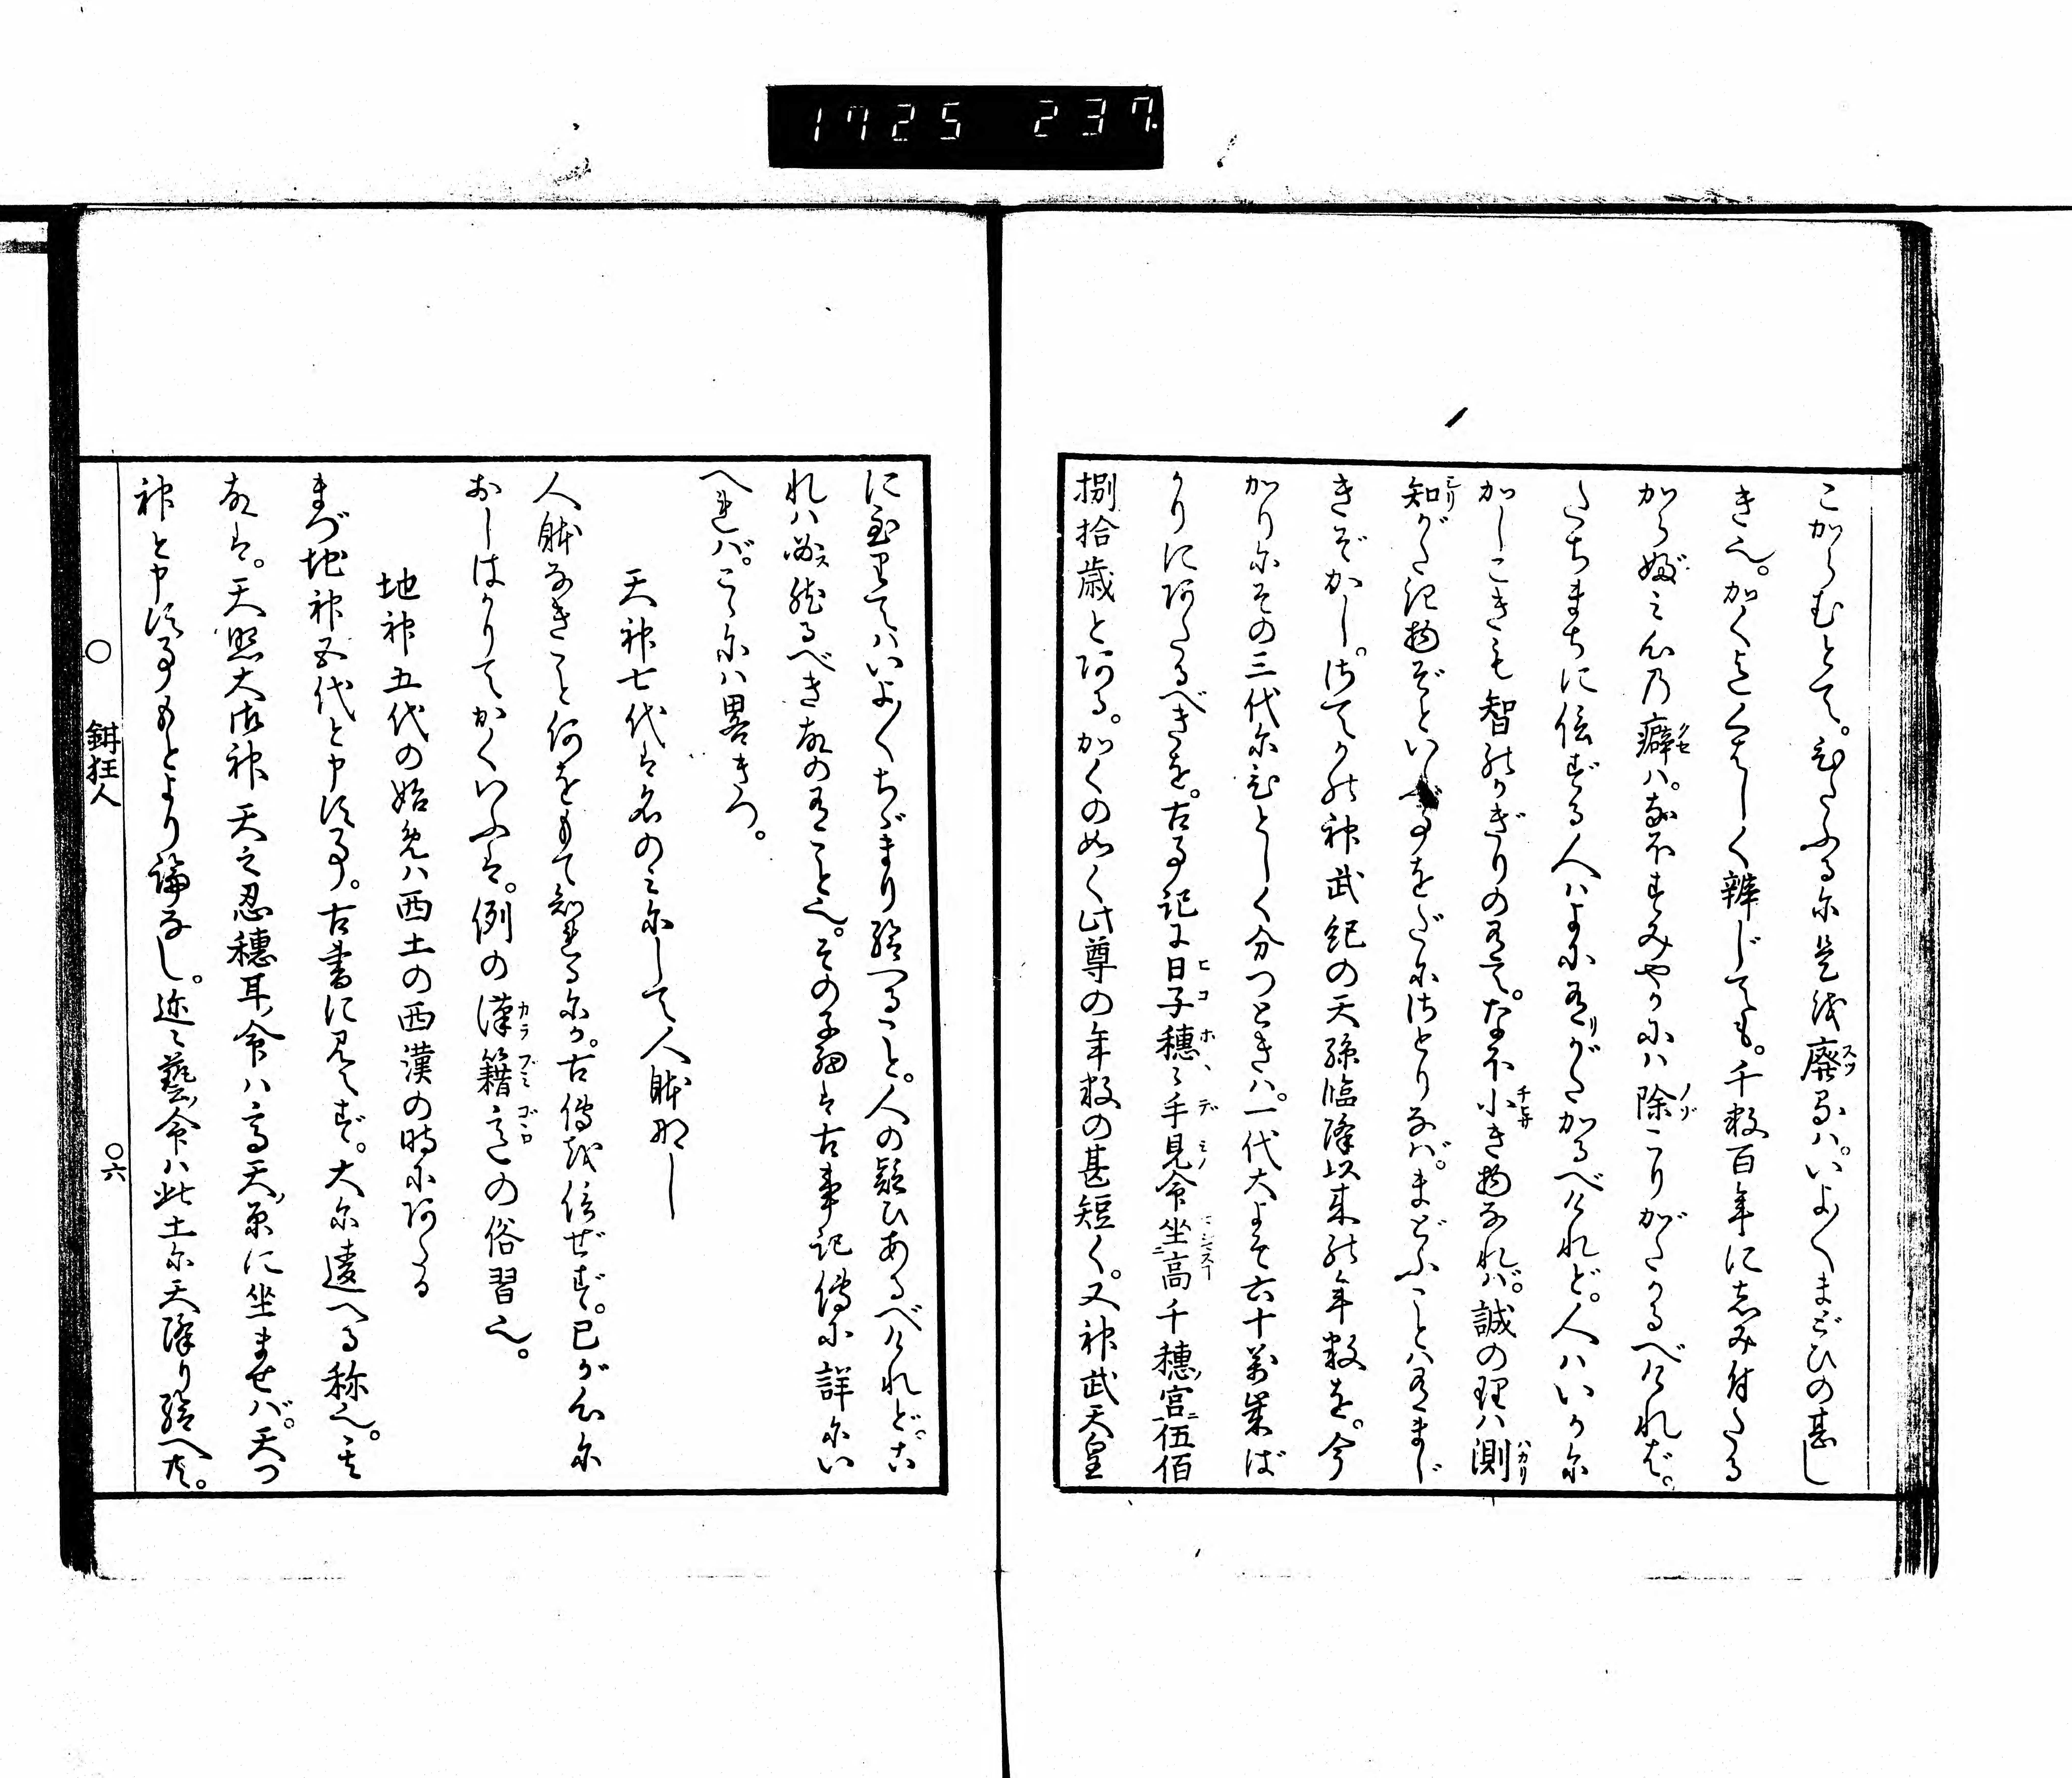 1725 237
こがらむとて。ひたふるに是を廃るは。いよ〳〵まどひの甚し
き也。かくまでくはしく辨じても。千数百年に志み付たる
からぶみ心の癖は。なほすみやかには除こりがたかるべければ。
たちまちに信ずる人はよに有がたかるべけれど。人はいかに
かしこきも智のかぎりの有て。なほ小き物なれば。誠の理は測
知がたき物ぞといふ事をだにさとりなば。まどふことは有まじ
きぞかし。さてかの神武紀の天孫臨降以来の年数を。今
かりにその三代にひとしく分つときは。一代大よそ六十萬歳ば
かりにあたるべきを。古事記に日子穂々手見命坐高千穂宮伍佰
捌拾歳とある。かくの如く此尊の年数の甚短く。又神武天皇
に至りてはいよ〳〵ちゞまり給へること。人の疑ひあるべけれど。こ
れは必ス然るべき故の有こと也。その子細は古事記傳に詳にい
へれば。こゝには畧きつ。
天神七代は名のみにして人躰なし
人躰なきこと何をもて知れるにか。古傳を信ぜず。己が心に
おしはかりてかくいふは。例の漢籍意の俗習也。
地神五代の始めは西土の西漢の時にあたる
まづ地神五代と申す事。古書に見えず。大に違へる称也。其
故は。天照大御神天之忍穂耳命は高天原に坐ませば。天つ
神と申す事もとより論なし。迩々藝命は此土に天降り給へ共。
鉗狂人
〇六